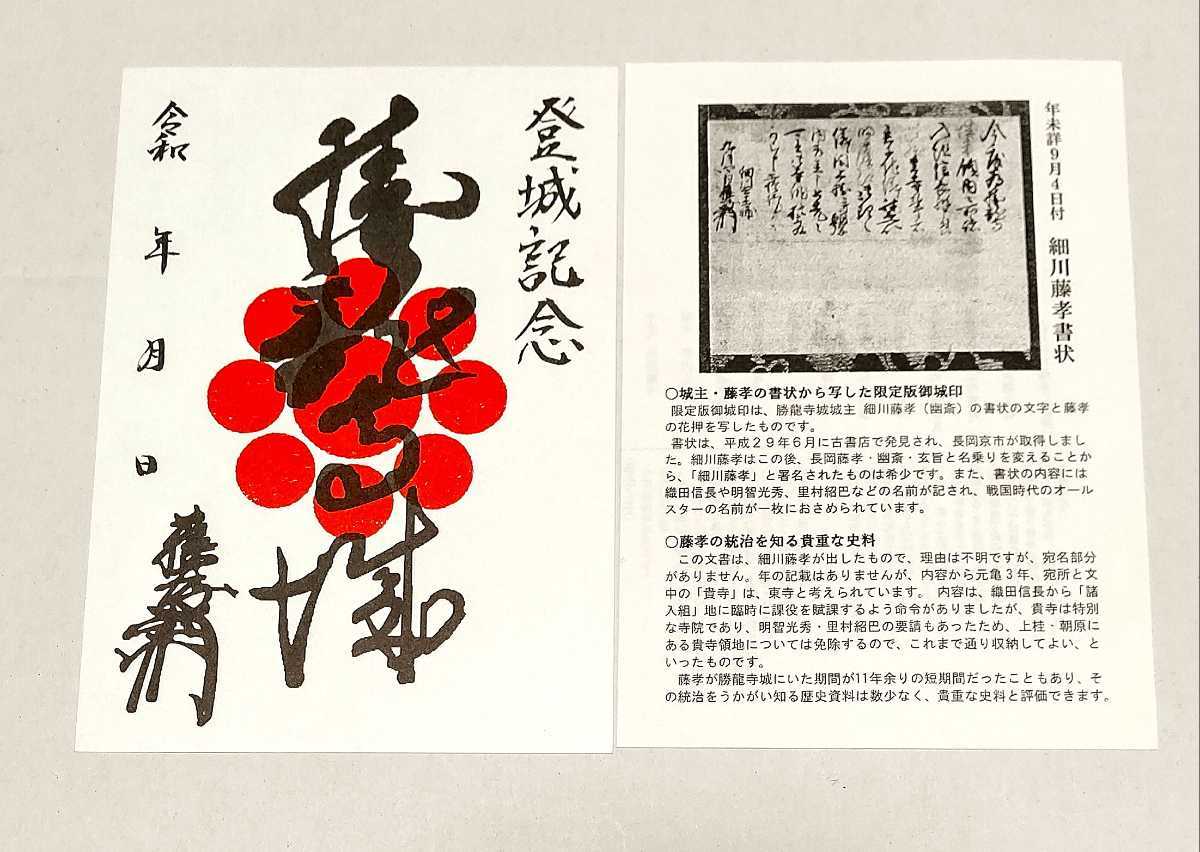 登城記念
勝龍寺城
令和 年 月 日
藤孝
年未詳9月4日付 細川藤孝書状
○城主・藤孝の書状から写した限定版御城印
限定版御城印は、勝龍寺城城主 細川藤孝（幽斎）の書状の文字と藤孝
の花押を写したものです。
書状は、平成２９年６月に古書店で発見され、長岡京市が取得しまし
た。細川藤孝はこの後、長岡藤孝・幽斎・玄旨と名乗りを変えることか
ら、「細川藤孝」と署名されたものは希少です。また、書状の内容には
織田信長や明智光秀、里村紹巴などの名前が記され、戦国時代のオール
スターの名前が一枚におさめられています。
○藤孝の統治を知る貴重な史料
この文書は、細川藤孝が出したもので、理由は不明ですが、宛名部分
がありません。年の記載はありませんが、内容から元亀３年、宛所と文
中の「貴寺」は、東寺と考えられています。 内容は、織田信長から「諸
入組」地に臨時に課役を賦課するよう命令がありましたが、貴寺は特別
な寺院であり、明智光秀・里村紹巴の要請もあったため、上桂・朝原に
ある貴寺領地については免除するので、これまで通り収納してよい、と
いったものです。
藤孝が勝龍寺城にいた期間が11年余りの短期間だったこともあり、そ
の統治をうかがい知る歴史資料は数少なく、貴重な史料と評価できます。